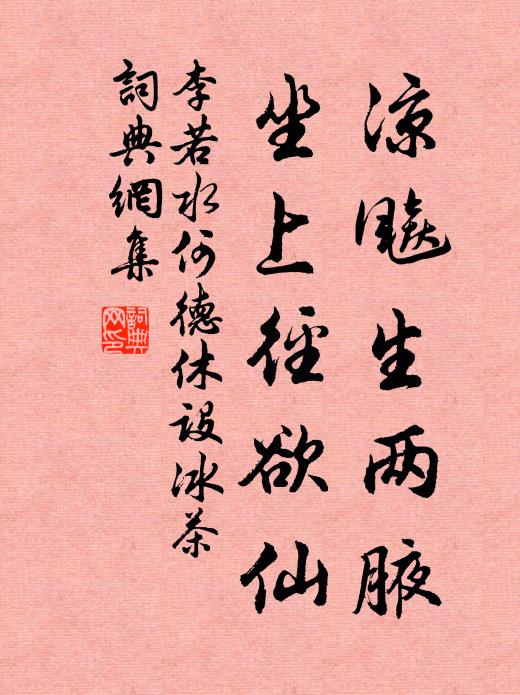 凉飚生两腋
坐上径欲仙
李若水何德休设冰茶
詞典網集
詞典网印